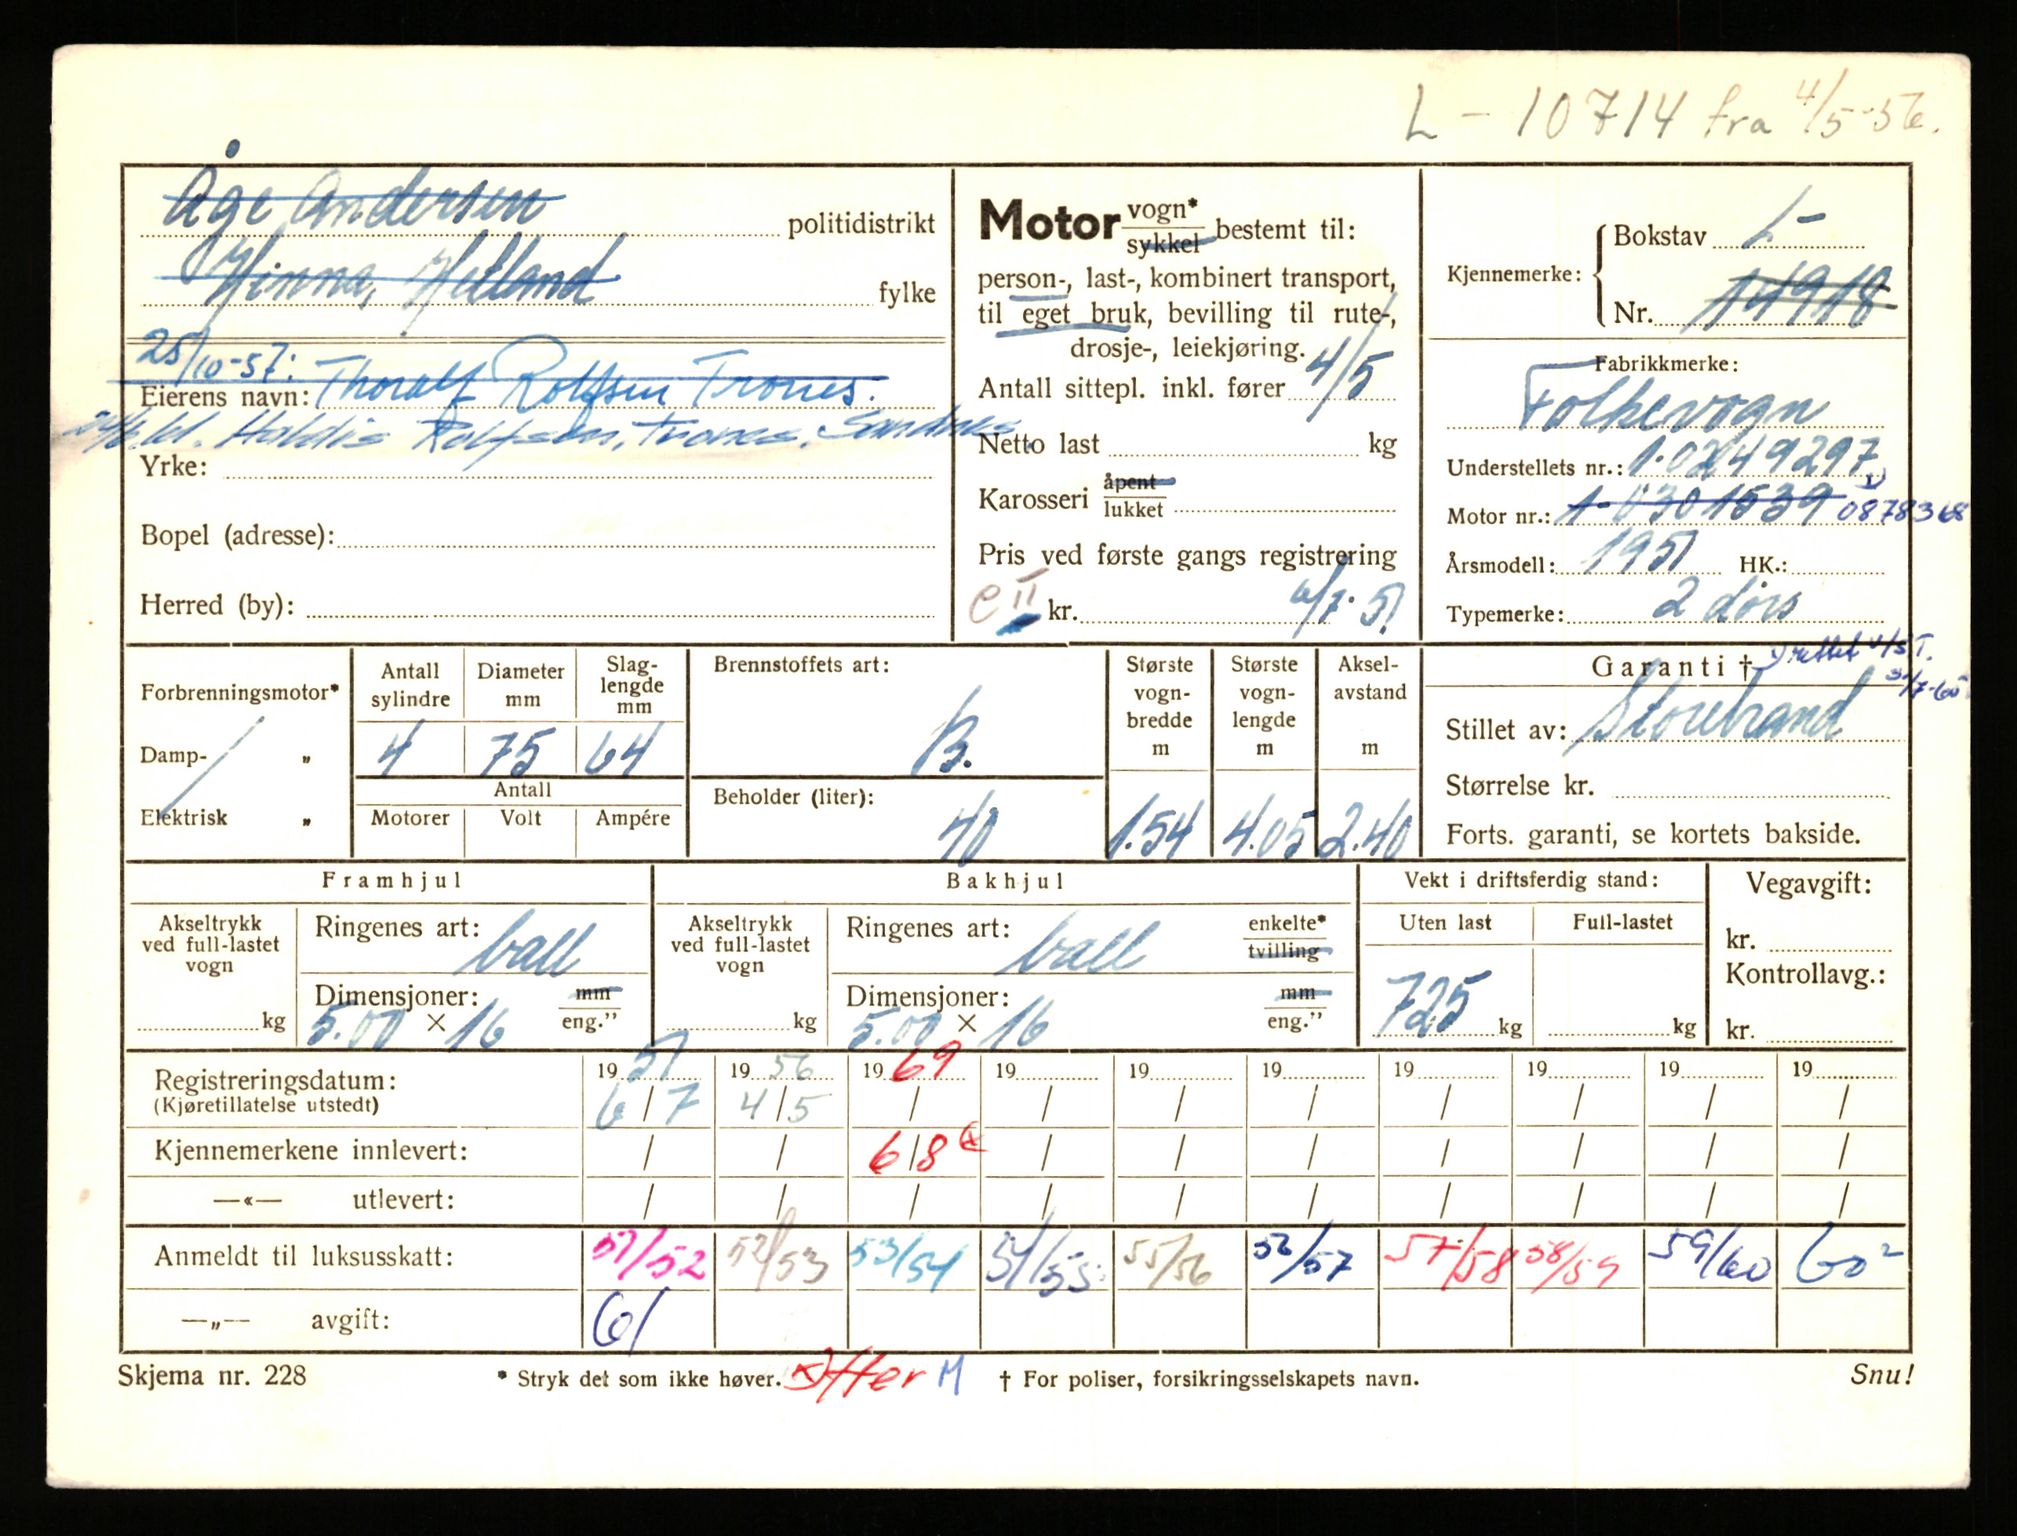 L - 10714 fra 4/5-56.
Åge Andersen politidistrikt
Hinna, Hetland fylke
25/10-57: Thoralf Rolfsen Trones.
Eierens navn:
Haldis Rolfsen, Trones, Sandnes
Yrke:
Bopel (adresse):
Herred (by):
Motor vogn* sykkel bestemt til:
person-, last-, kombinert transport,
til eget bruk, bevilling til rute-,
drosje-, leiekjøring.
Antall sittepl. inkl. fører 4/5
Netto last kg
Karosseri åpent lukket
Pris ved første gangs registrering
e II kr. 6/7-51
Kjennemerke: Bokstav L-
Nr. 14918
Fabrikkmerke:
Folkevogn
Understellets nr.: 1-0249297
Motor nr.: 1-0301539 0878368
Årsmodell: 1951 HK.:
Typemerke: 2 dørs
Forbrenningsmotor*
Damp- „
Elektrisk „
Antall sylindre 4
Diameter mm 75
Slaglengde mm 64
Antall
Motorer Volt Ampére
Brennstoffets art: B.
Beholder (liter): 40
Største vogn-bredde m 1.54
Største vogn-lengde m 4.05
Aksel-avstand m 2.40
Garanti † 1) rettet 4/5 T.
3/7-60
Stillet av: Storebrand
Størrelse kr.
Forts. garanti, se kortets bakside.
Framhjul
Akseltrykk ved full-lastet vogn kg
Ringenes art: ball
Dimensjoner: mm
5.00 × 16 eng.”
Bakhjul
Akseltrykk ved full-lastet vogn kg
Ringenes art: ball enkelte* tvilling
Dimensjoner: mm
5.00 × 16 eng.”
Vekt i driftsferdig stand:
Uten last Full-lastet
725 kg kg
Vegavgift:
kr.
Kontrollavg.:
kr.
Registreringsdatum: 1951 1956 1969 19 19 19 19 19 19 19
(Kjøretillatelse utstedt) 6/7 4/5 / / / / / / / /
Kjennemerkene innlevert: / / 6/8 / / / / / / /
—«— utlevert: / / / / / / / / / /
Anmeldt til luksusskatt: 51/52 52/53 53/54 54/55 55/56 56/57 57/58 58/59 59/60 60²
—„— avgift: 61
Skjema nr. 228 * Stryk det som ikke høver. M † For poliser, forsikringsselskapets navn. Snu!